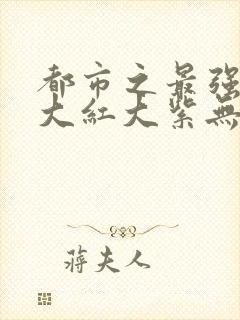 都市之最强
大紅大紫無
蔣夫人